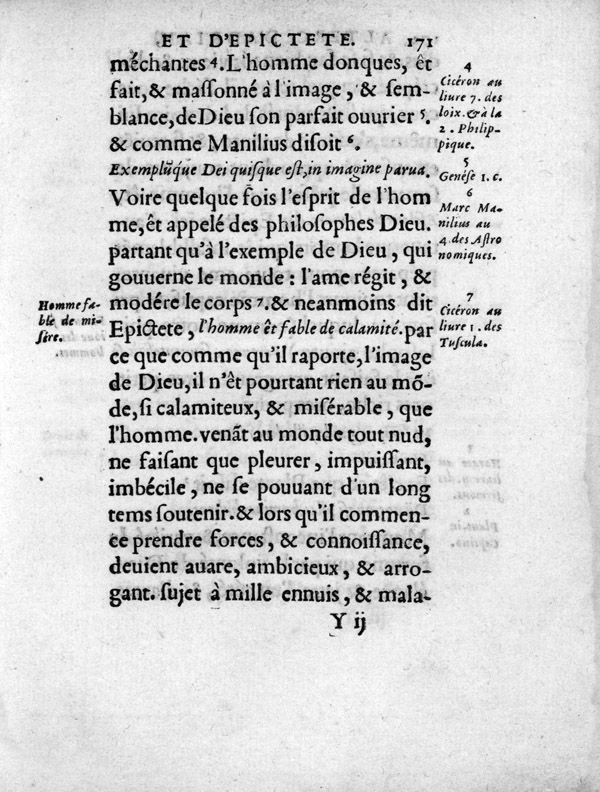 ET D'EPICTETE. 171
méchantes 4. L'homme donques, êt
fait, & maſſonné à l'image, & ſem-
blance, de Dieu ſon parfait ouurier 5.
& comme Manilius diſoit 6.
Exemplúque Dei quiſque eſt, in imagine parua.
Voire quelque fois l'eſprit de l'hom
me, êt appelé des philoſophes Dieu.
partant qu'à l'exemple de Dieu, qui
gouuerne le monde : l'ame régit, &
modére le corps 7. & neanmoins dit
Epictete, l'homme êt fable de calamité. par
ce que comme qu'il raporte, l'image
de Dieu, il n'êt pourtant rien au mõ-
de, ſi calamiteux, & miſérable, que
l'homme. venãt au monde tout nud,
ne faiſant que pleurer, impuiſſant,
imbécile, ne ſe pouuant d'un long
tems ſoutenir. & lors qu'il commen-
ce prendre forces, & connoiſſance,
deuient auare, ambicieux, & arro-
gant. ſujet à mille ennuis, & mala-
Y ij
4
Cicéron au
liure 7. des
loix. & à la
2. Philip-
pique.
5
Genéſe 1. c.
6
Marc Ma-
nilius au
4 des Aſtro
nomiques.
7
Cicéron au
liure 1. des
Tuſcula.
Homme fa-
ble de mi-
ſére.